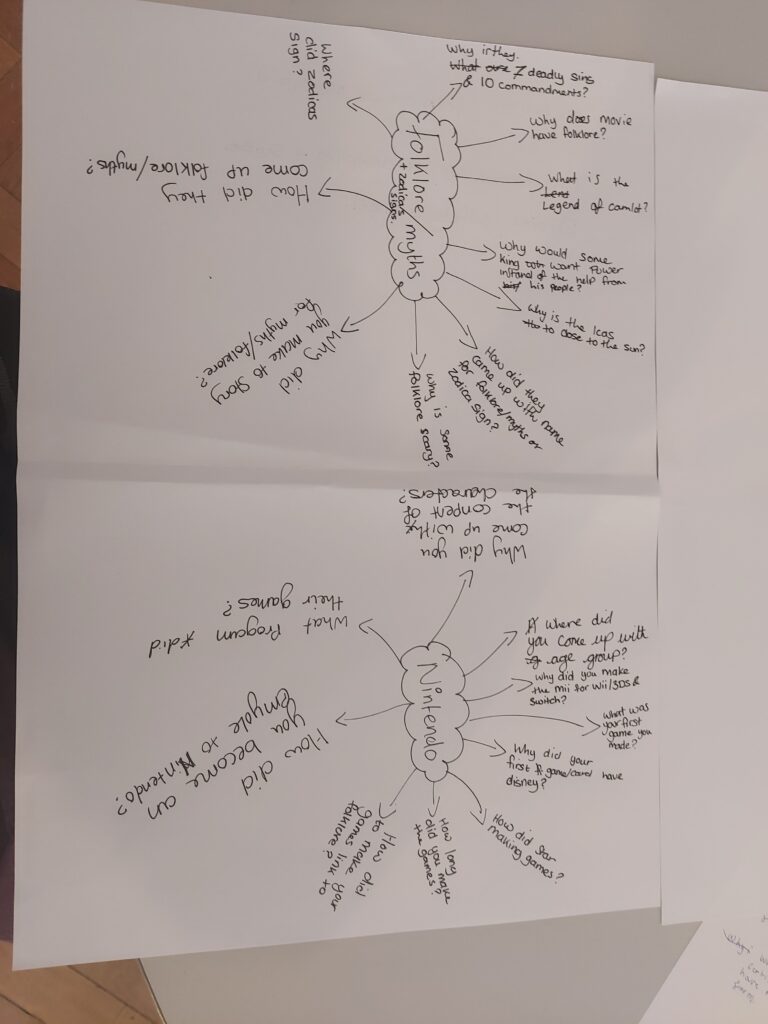 Folklore/myths
+ zodicars
signs.
Why irthey.
What are 7 deadly sins
& 10 commandments?
Why does movie
have folklore?
What is the
Legend of camlot?
Why would some
king want Power
instand of the help from
his people?
Why is the Icas
too to close to the sun?
How did they
came up with name
for folklore/myths or
zodica sign?
why is some
folklore scary?
Why did
you make to story
for myths/folklore?
How did they
come up folklore/myths?
Where
did zodicas
sign?
Nintendo
Why did you
come up with
the conpent of
the characters?
Where did
you come up with
age group?
Why did you make
the mii for Wii/3DS &
Switch?
What was
your first
game you
made?
Why did your
first game/card have
disney?
How did star
making games?
How long
did you make
the games?
How did
to make
games link your
folklore?
How did
you become an
emyole to Nintendo?
What Progam did
their games?